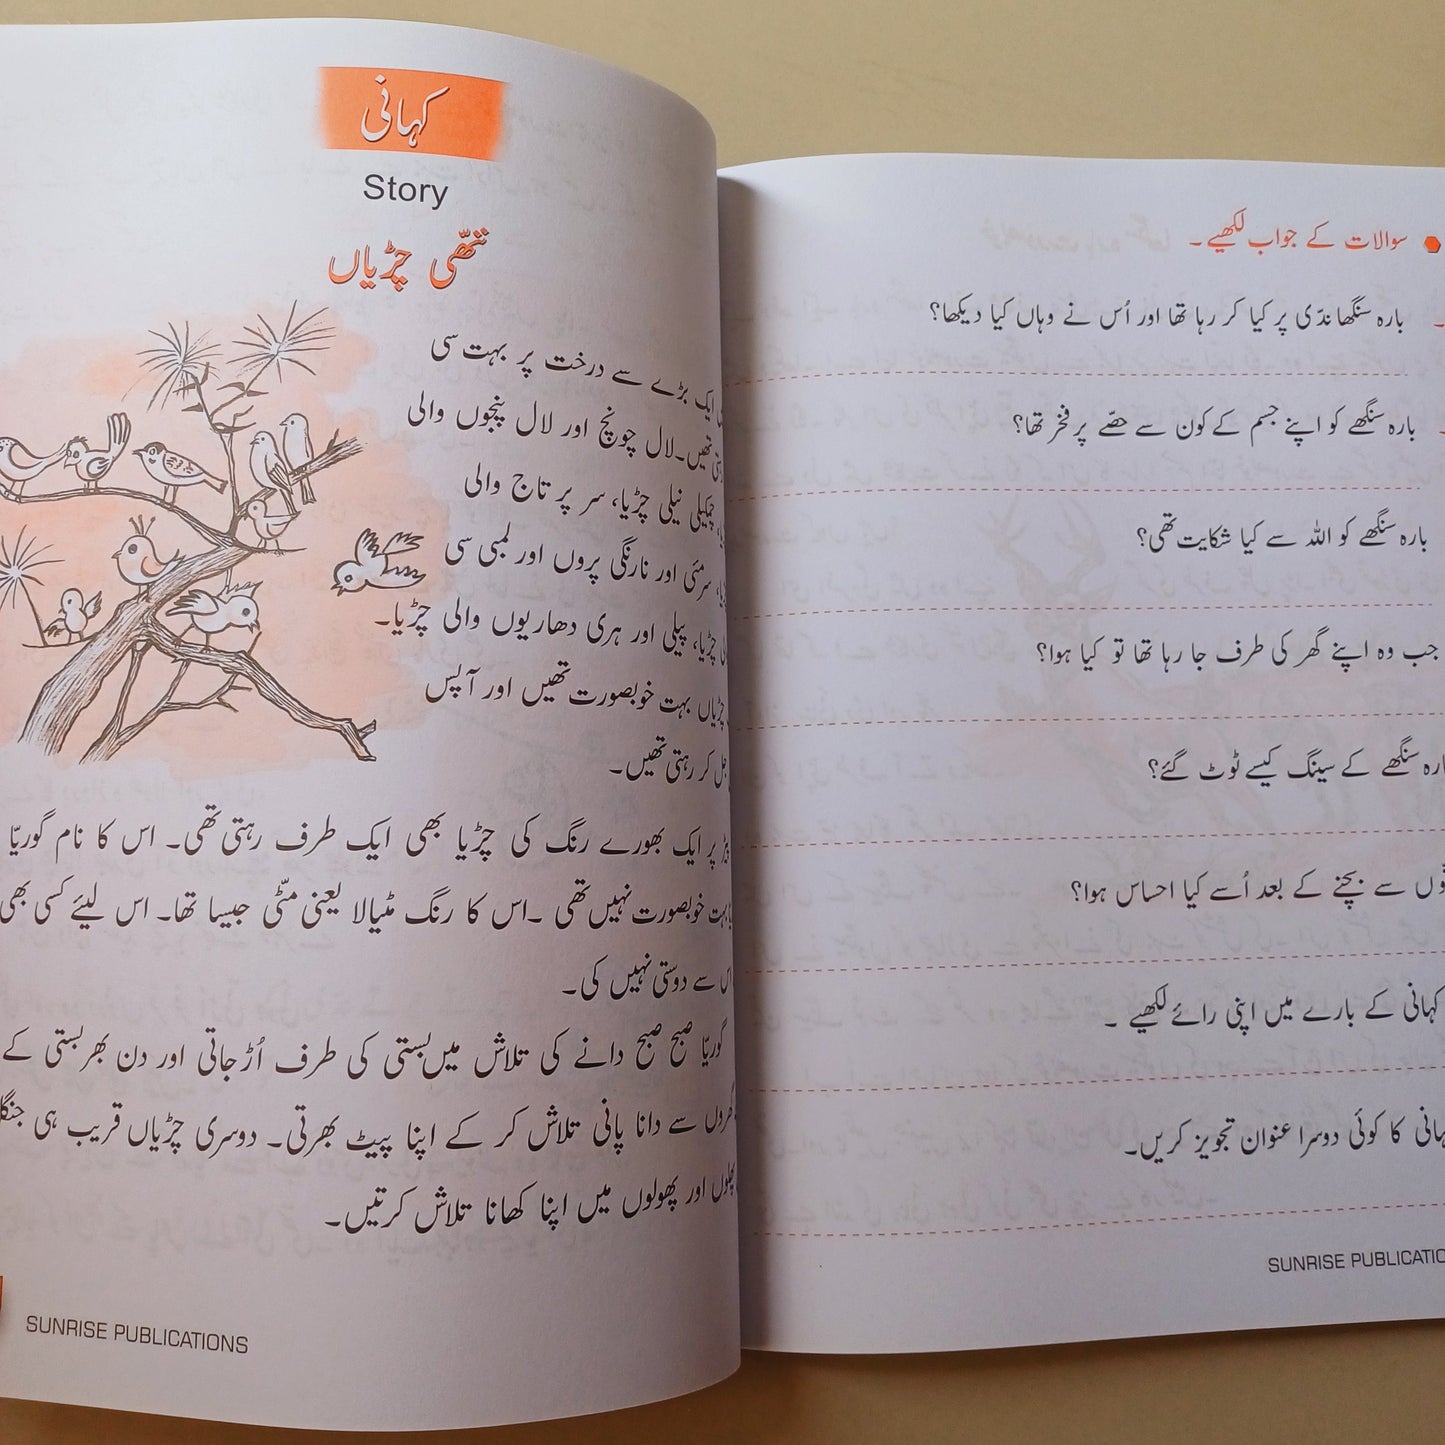 کہانی
Story
ننھّی چڑیاں
ایک بڑے سے درخت پر بہت سی
تھیں۔ لال چونچ اور لال پنجوں والی
چمکیلی نیلی چڑیا، سر پر تاج والی
سرمئی اور نارنگی پروں اور لمبی سی
چڑیا، پیلی اور ہری دھاریوں والی چڑیا۔
چڑیاں بہت خوبصورت تھیں اور آپس
جل کر رہتی تھیں۔
پر ایک بھورے رنگ کی چڑیا بھی ایک طرف رہتی تھی۔ اس کا نام گوریّا
خوبصورت نہیں تھی ۔ اس کا رنگ مٹیالا یعنی مٹّی جیسا تھا۔ اس لیئے کسی بھی
اس سے دوستی نہیں کی۔
گوریّا صبح صبح دانے کی تلاش میں بستی کی طرف اُڑ جاتی اور دن بھر بستی کے
گھروں سے دانا پانی تلاش کر کے اپنا پیٹ بھرتی۔ دوسری چڑیاں قریب ہی
پھلوں اور پھولوں میں اپنا کھانا تلاش کرتیں۔
SUNRISE PUBLICATIONS
سوالات کے جواب لکھیے۔
بارہ سنگھا ندّی پر کیا کر رہا تھا اور اُس نے وہاں کیا دیکھا؟
بارہ سنگھے کو اپنے جسم کے کون سے حصّے پر فخر تھا؟
بارہ سنگھے کو اللہ سے کیا شکایت تھی؟
جب وہ اپنے گھر کی طرف جا رہا تھا تو کیا ہوا؟
سنگھے کے سینگ کیسے ٹوٹ گئے؟
سے بچنے کے بعد اُسے کیا احساس ہوا؟
کہانی کے بارے میں اپنی رائے لکھیے ۔
کا کوئی دوسرا عنوان تجویز کریں۔
SUNRISE PUBLICATIO